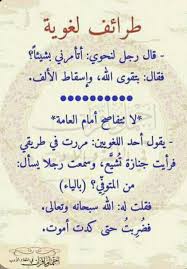 طرائف لغوية
- قال رجل لنحوي: أتأمرني بشيئاً؟
فقال: بتقوى الله، وإسقاط الألف.
*لا تتفاصح أمام العامة*
- يقول أحد اللغويين: مررت في طريقي
فرأيت جنازة تُشيَّع، وسمعت رجلا يسأل:
من المتوفِّي؟ (بالياء)
فقلت له: الله سبحانه وتعالى.
فضُرِبتُ حتى كدت أموت.